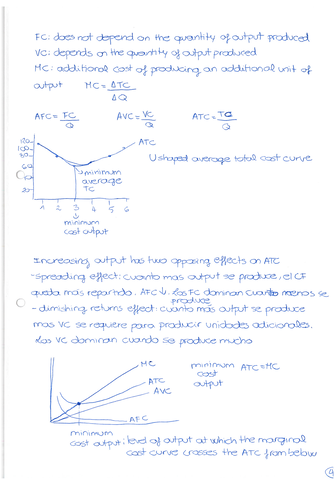 FC: does not depend on the quantity of output produced
VC: depends on the quantity of output produced
MC: additional cost of producing an additional unit of
output MC = ΔTC / ΔQ
AFC = FC / Q AVC = VC / Q ATC = TC / Q
ATC
U shaped average total cost curve
minimum
average
TC
1 2 3 4 5 6
minimum
cost output
Increasing output has two opposing effects on ATC
- spreading effect: cuanto mas output se produce, el CF
queda mas repartido. AFC↓. Los FC dominan cuando menos se
produce
- dimishing returns effect: cuanto más output se produce
mas VC se requiere para producir unidades adicionales.
Los VC dominan cuando se produce mucho
MC
ATC
AVC
AFC
minimum ATC=MC
cost
output
minimum
cost output: level of output at which the marginal
cost curve crosses the ATC from below